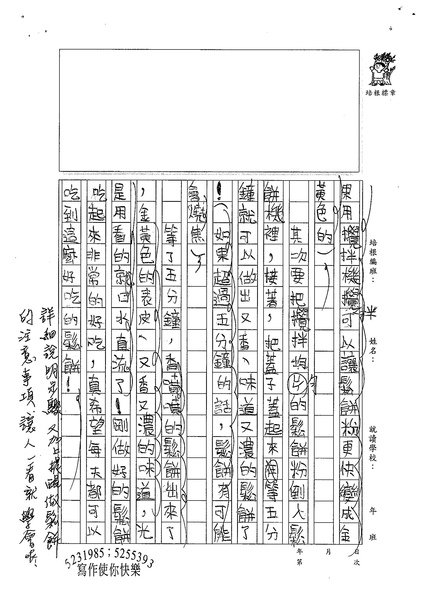 培根標章
培根編班：
姓名：
就讀學校：
年 班
年 月 日
第 次
果用攪拌機攪可以讓鬆餅粉更快變成金
黃色的）
其次要把攪拌均勻的鬆餅粉倒入鬆
餅機裡，接著，把蓋子蓋起來，等五分
鐘就可以做出又香、味道又濃的鬆餅了
！（如果超過五分鐘的話，鬆餅有可能
會燒焦）
等了五分鐘，香噴噴的鬆餅出來了
，金黃色的表皮、又香又濃的味道，光
是用看的就口水直流了！剛做好的鬆餅
吃起來非常的好吃，真希望每天都可以
吃到這麼好吃的鬆餅！
詳細說明步驟，又加上提醒做鬆餅
的注意事項，讓人一看就學會唷
5231985；5255393
寫作使你快樂